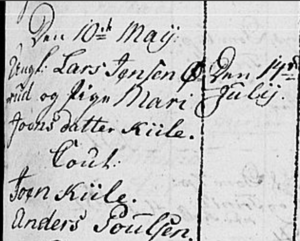 Den 10de Maij.
Ungk. Lars Jensen Ø
rud og Pige Mari
Joensdatter Kiile.
Cout:
Joen Kiile.
Anders Poulsen.
Den 14de
Julij.